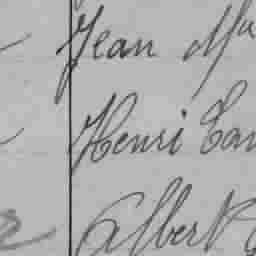 Jean Ma
Henri
Albert